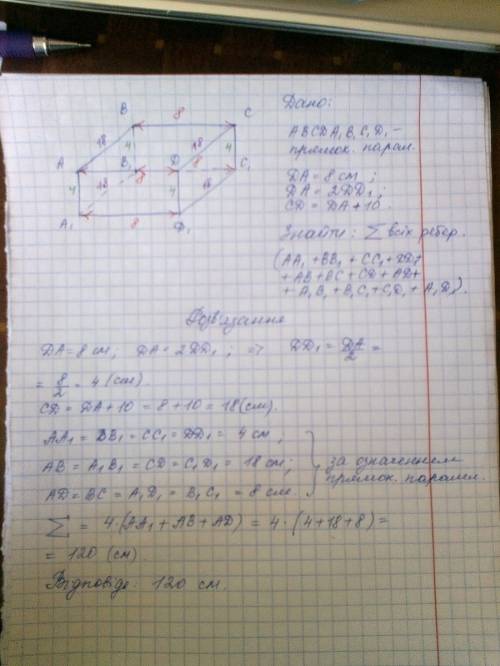 B 8 C
18 4 18 4
A B₁ D 8 C₁
4 18 8 4 18
A₁ 8 D₁
Дано:
ABCDA₁B₁C₁D₁ –
прямок. парал.
DA = 8 см ;
DA = 2DD₁ ;
CD = DA + 10.
Знайти: ∑ всіх ребер.
(AA₁ + BB₁ + CC₁ + DD₁
+ AB + BC + CD + AD +
+ A₁B₁ + B₁C₁ + C₁D₁ + A₁D₁).
Розв'язання
DA = 8 см; DA = 2DD₁ ; => DD₁ = DA/2 =
= 8/2 = 4 (см).
CD = DA + 10 = 8 + 10 = 18 (см).
AA₁ = BB₁ = CC₁ = DD₁ = 4 см,
AB = A₁B₁ = CD = C₁D₁ = 18 см;
AD = BC = A₁D₁ = B₁C₁ = 8 см.
за означенням
прямок. парал.
∑ = 4·(AA₁ + AB + AD) = 4·(4+18+8) =
= 120 (см)
Відповідь: 120 см.